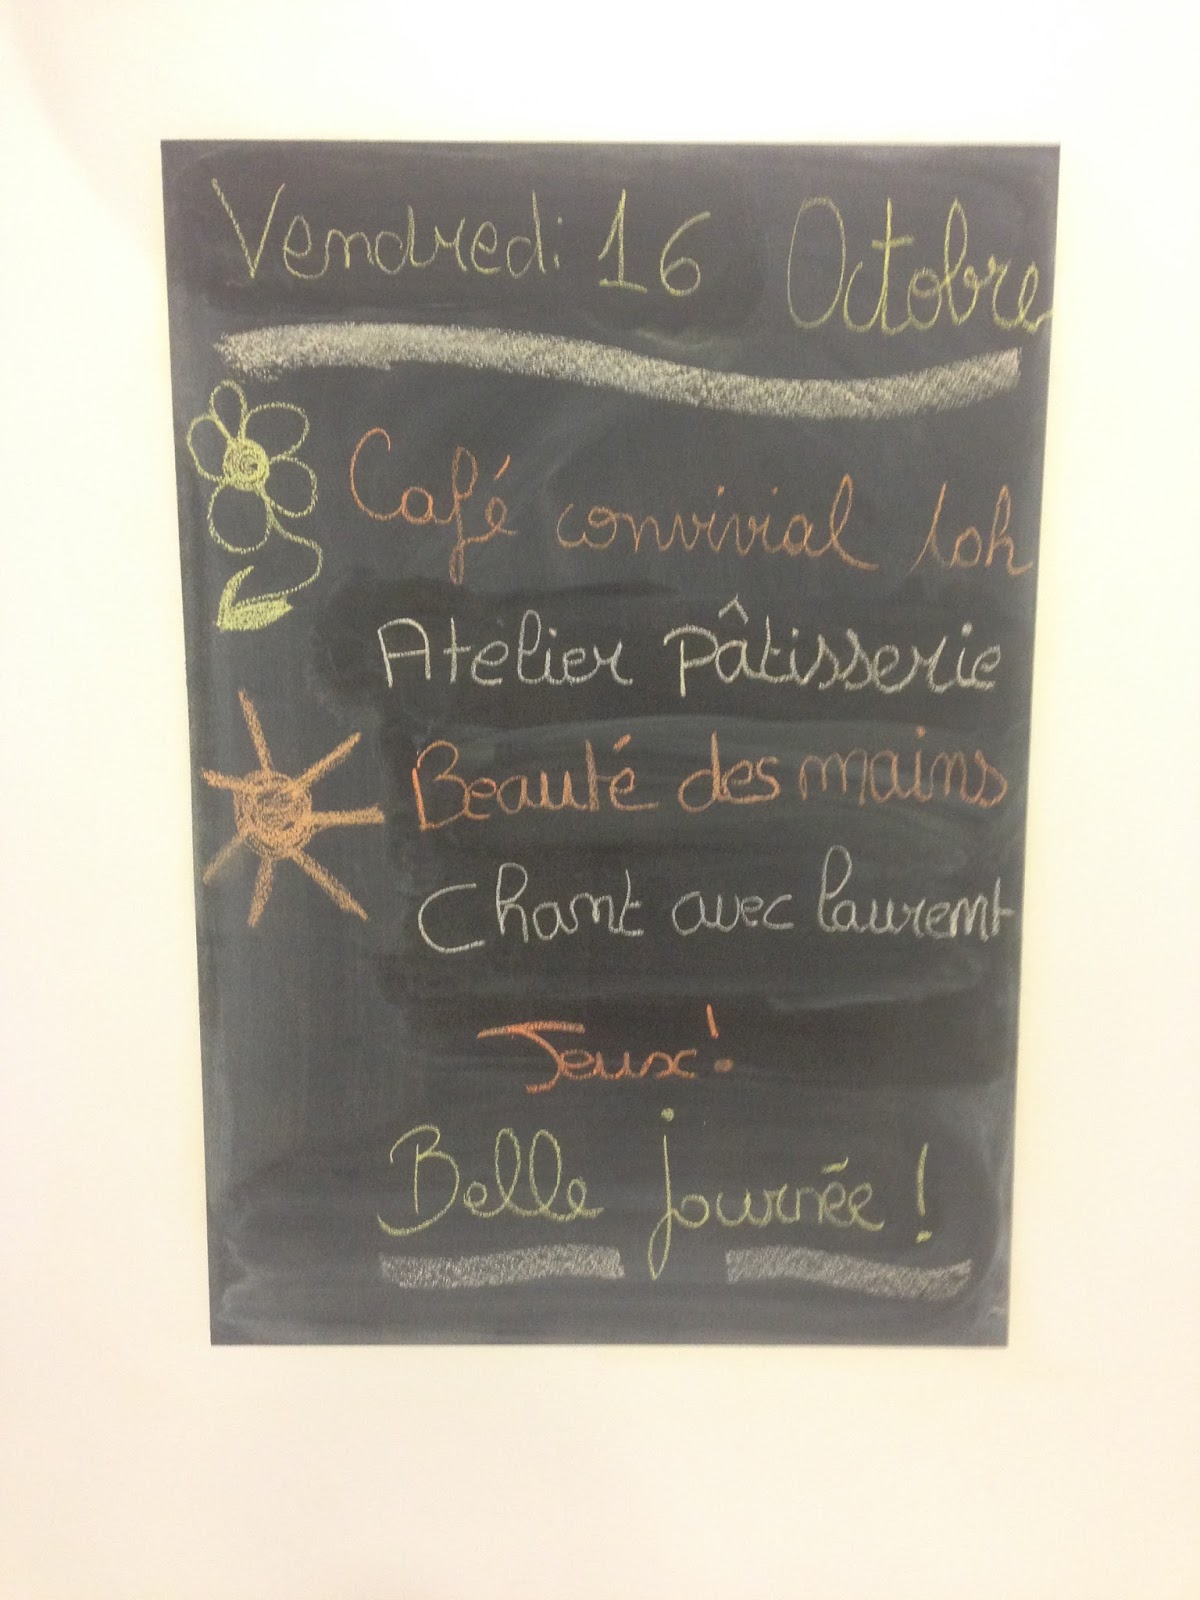 Vendredi 16 Octobre
Café convivial 10h
Atelier pâtisserie
Beauté des mains
Chant avec laurent
Jeux !
Belle journée !